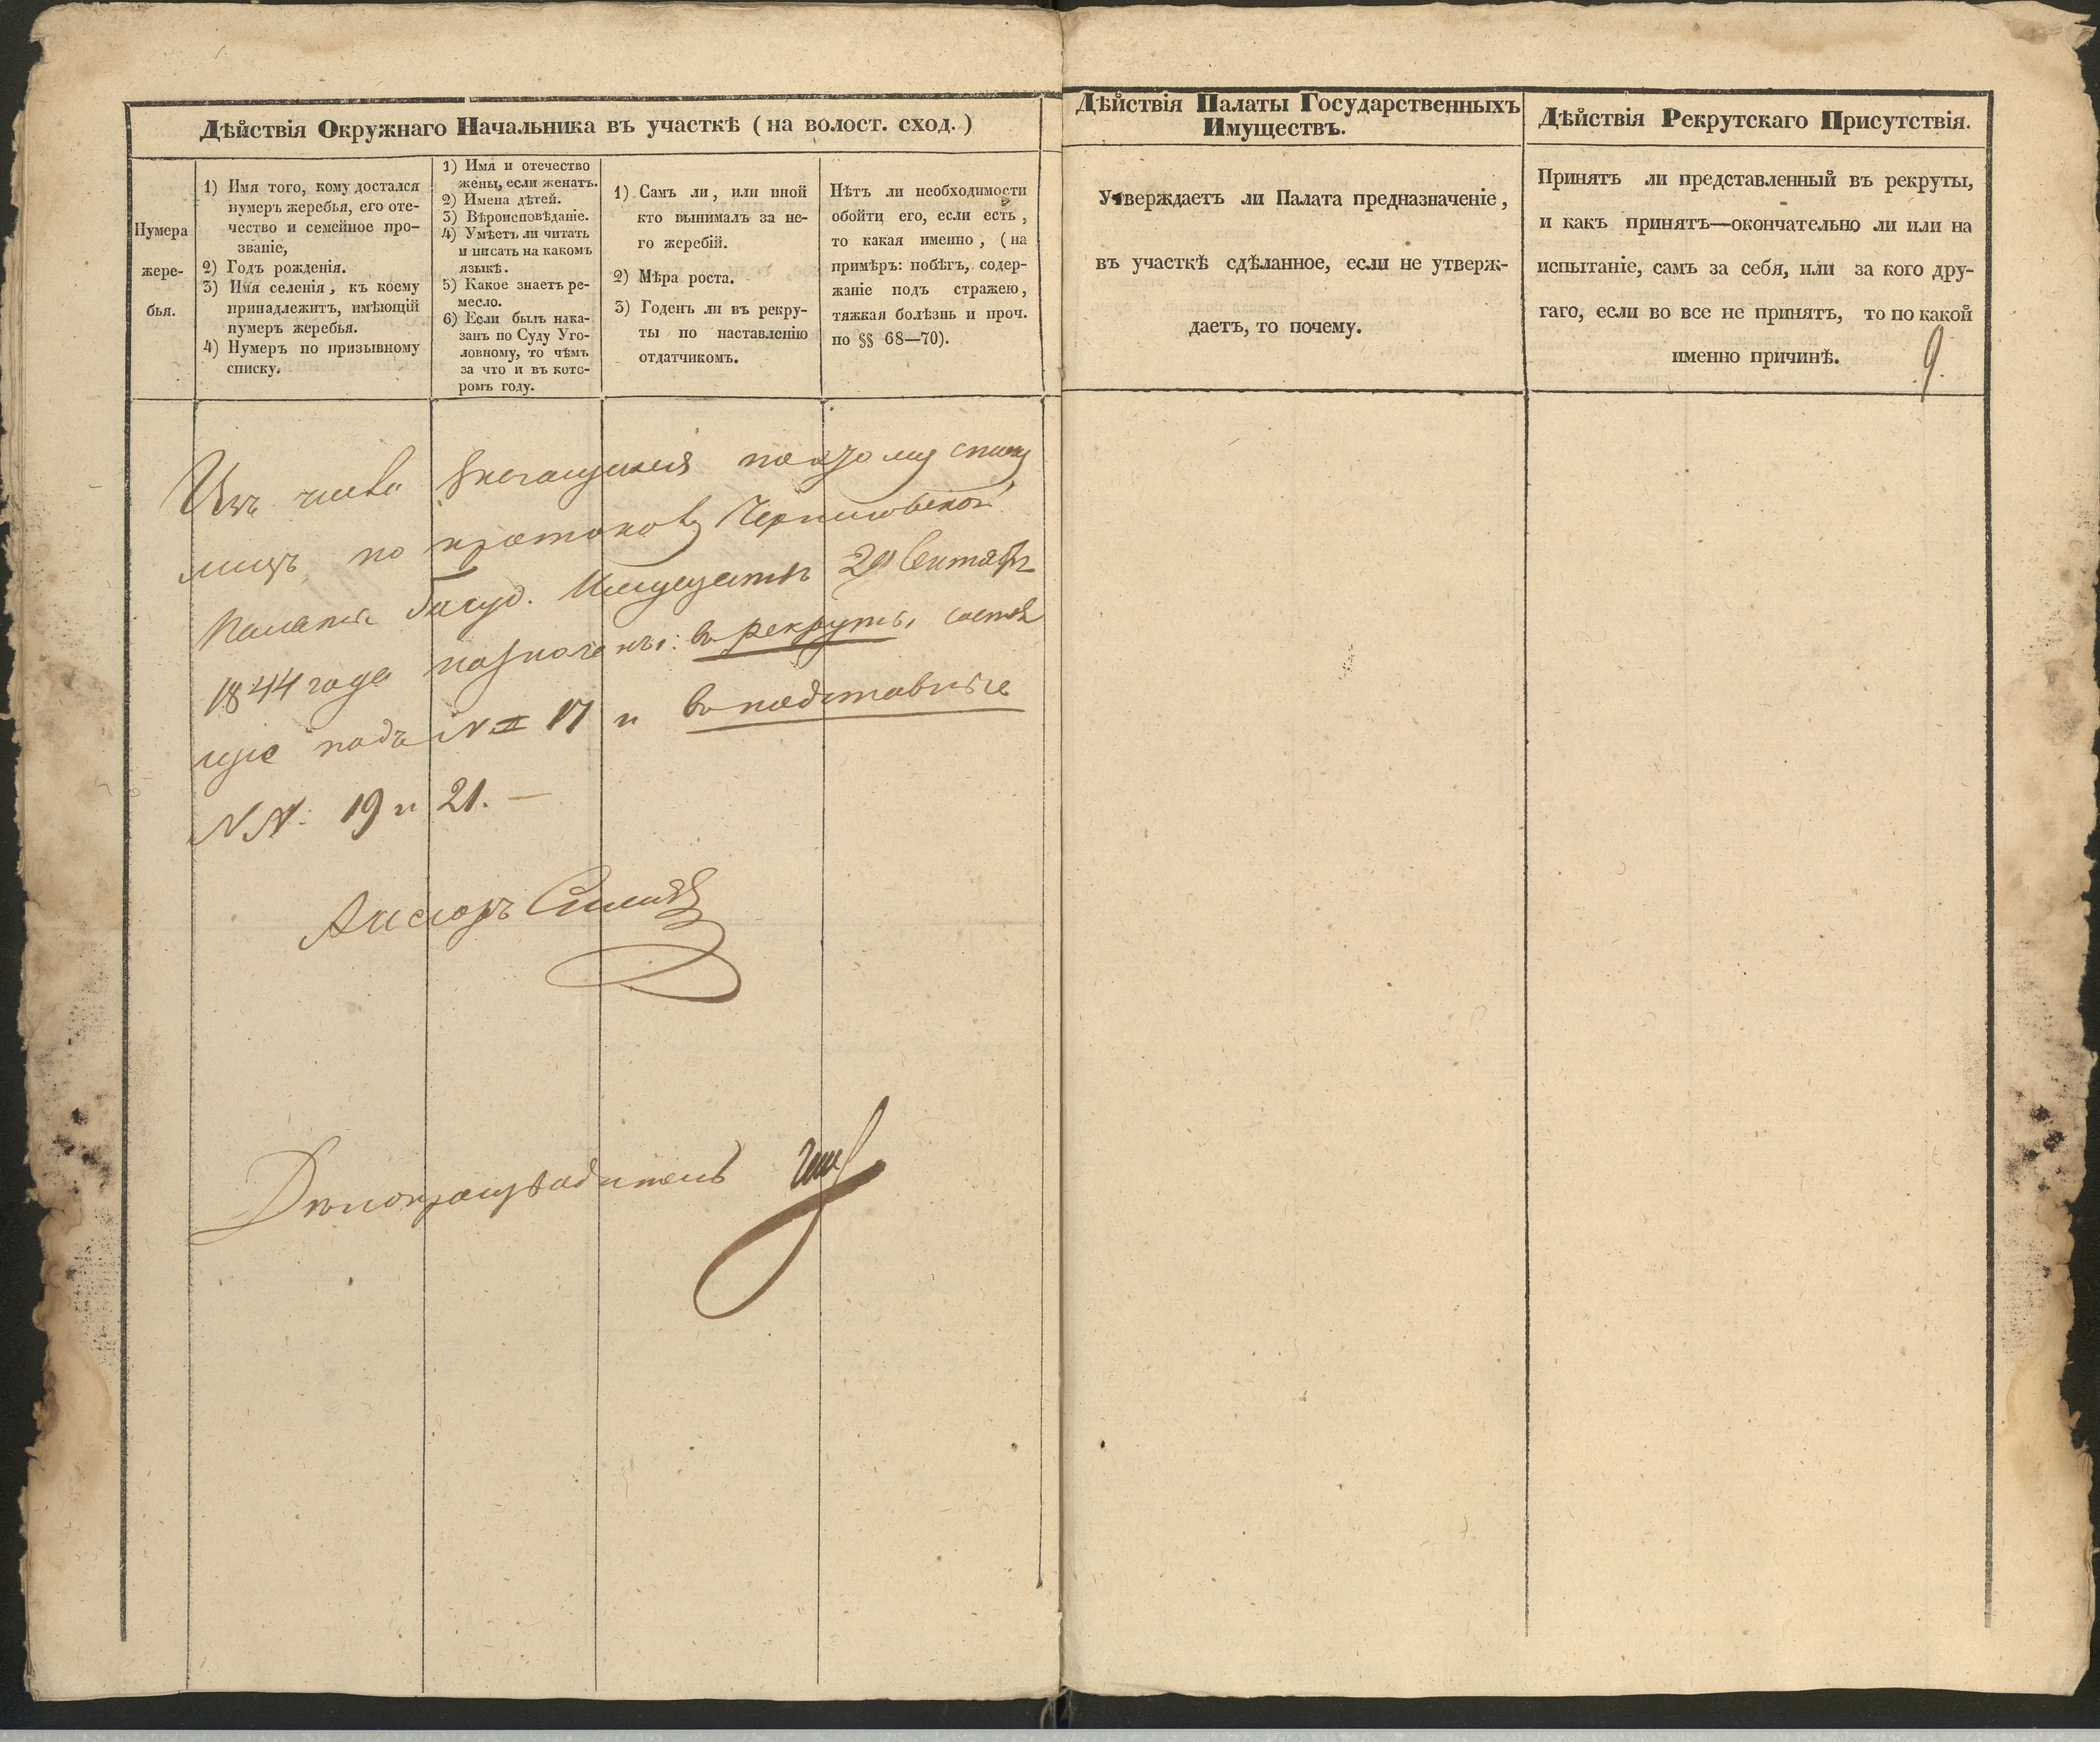 Дѣйствія Окружнаго Начальника въ участкѣ (на волост. сход.)
Нумера
жере-
бья.
1) Имя того, кому достался
нумеръ жеребья, его оте-
чество и семейное про-
званіе,
2) Годъ рожденія.
3) Имя селенія, къ коему
принадлежитъ, имѣющій
нумеръ жеребья.
4) Нумеръ по призывному
списку.
1) Имя и отечество
жены, если женатъ.
2) Имена дѣтей.
3) Вѣроисповѣданіе.
4) Умѣетъ ли читать
и писать на какомъ
языкѣ.
5) Какое знаетъ ре-
месло.
6) Если былъ нака-
занъ по Суду Уго-
ловному, то чѣмъ
за что и въ кото-
ромъ году.
1) Самъ ли, или иной
кто вынималъ за не-
го жеребій.
2) Мѣра роста.
3) Годенъ ли въ рекру-
ты по наставленію
отдатчикомъ.
Нѣтъ ли необходимости
обойти его, если есть,
то какая именно, (на
примѣръ: побѣгъ, содер-
жаніе подъ стражею,
тяжкая болѣзнь и проч.
по §§ 68—70).
Изъ числа значущихся по сему списку
лицъ, по протоколу Черниговской
Палаты Госуд. Имуществъ 29 Сентября
1844 года назначены: въ рекруты, состоя
щіе подъ № 17 и въ подставные
NN: 19 и 21. —
Дѣлопроизводитель
Дѣйствія Палаты Государственныхъ
Имуществъ.
Утверждаетъ ли Палата предназначеніе,
въ участкѣ сдѣланное, если не утверж-
даетъ, то почему.
Дѣйствія Рекрутскаго Присутствія.
Принятъ ли представленный въ рекруты,
и какъ принятъ—окончательно ли или на
испытаніе, самъ за себя, или за кого дру-
гаго, если во все не принятъ, то по какой
именно причинѣ.
9.